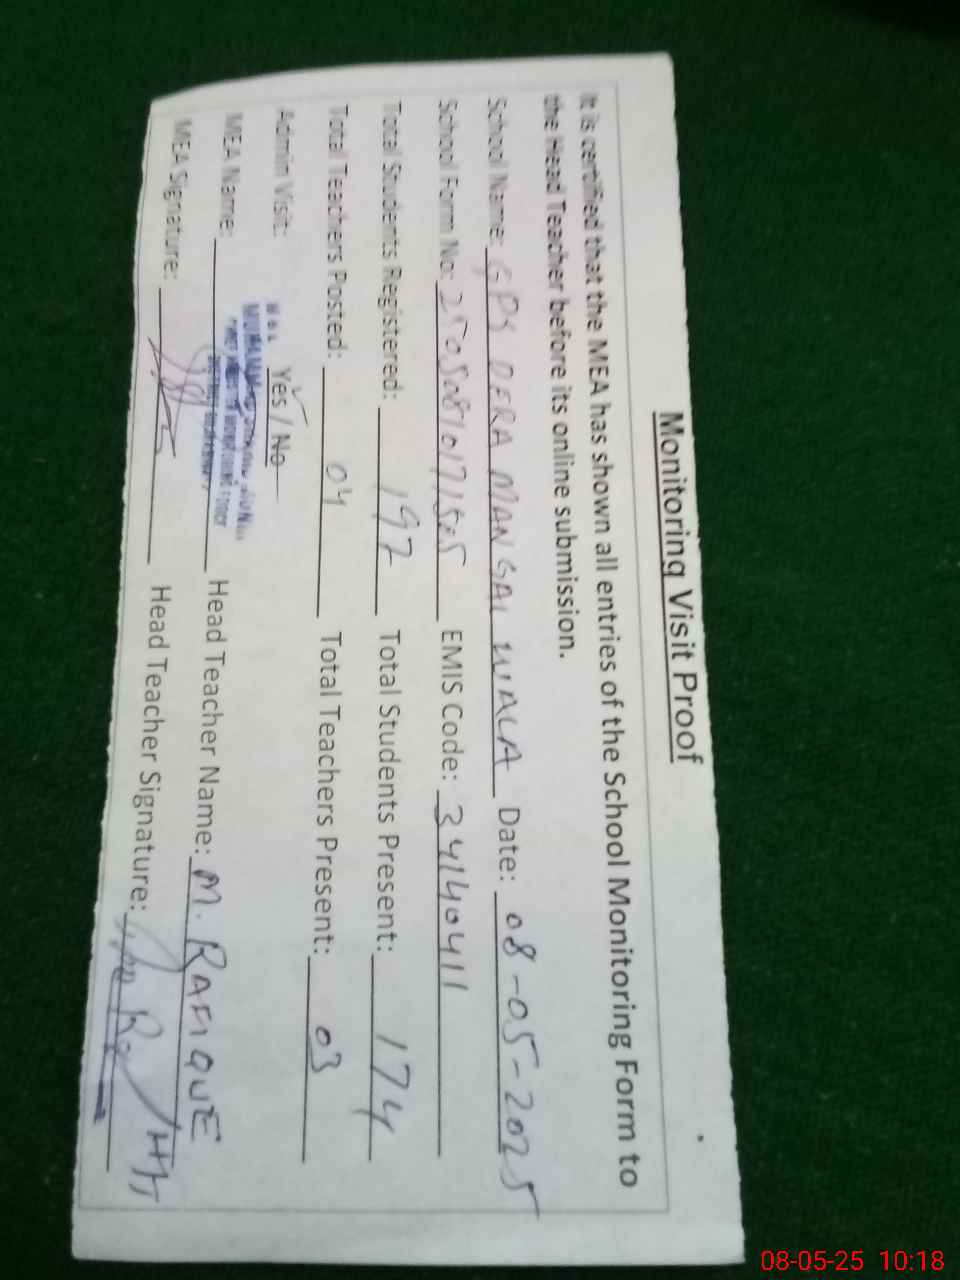 Monitoring Visit Proof
It is certified that the MEA has shown all entries of the School Monitoring Form to
the Head Teacher before its online submission.
School Name: GPS DERA MANGAL WALA Date: 08-05-2025
School Form No: EMIS Code: 34140411
Total Students Registered: 192 Total Students Present: 174
Total Teachers Posted: 04 Total Teachers Present: 03
Admin Visit: Yes / No
MEA Name: Head Teacher Name: M. RAFIQUE
MEA Signature: Head Teacher Signature:
08-05-25 10:18